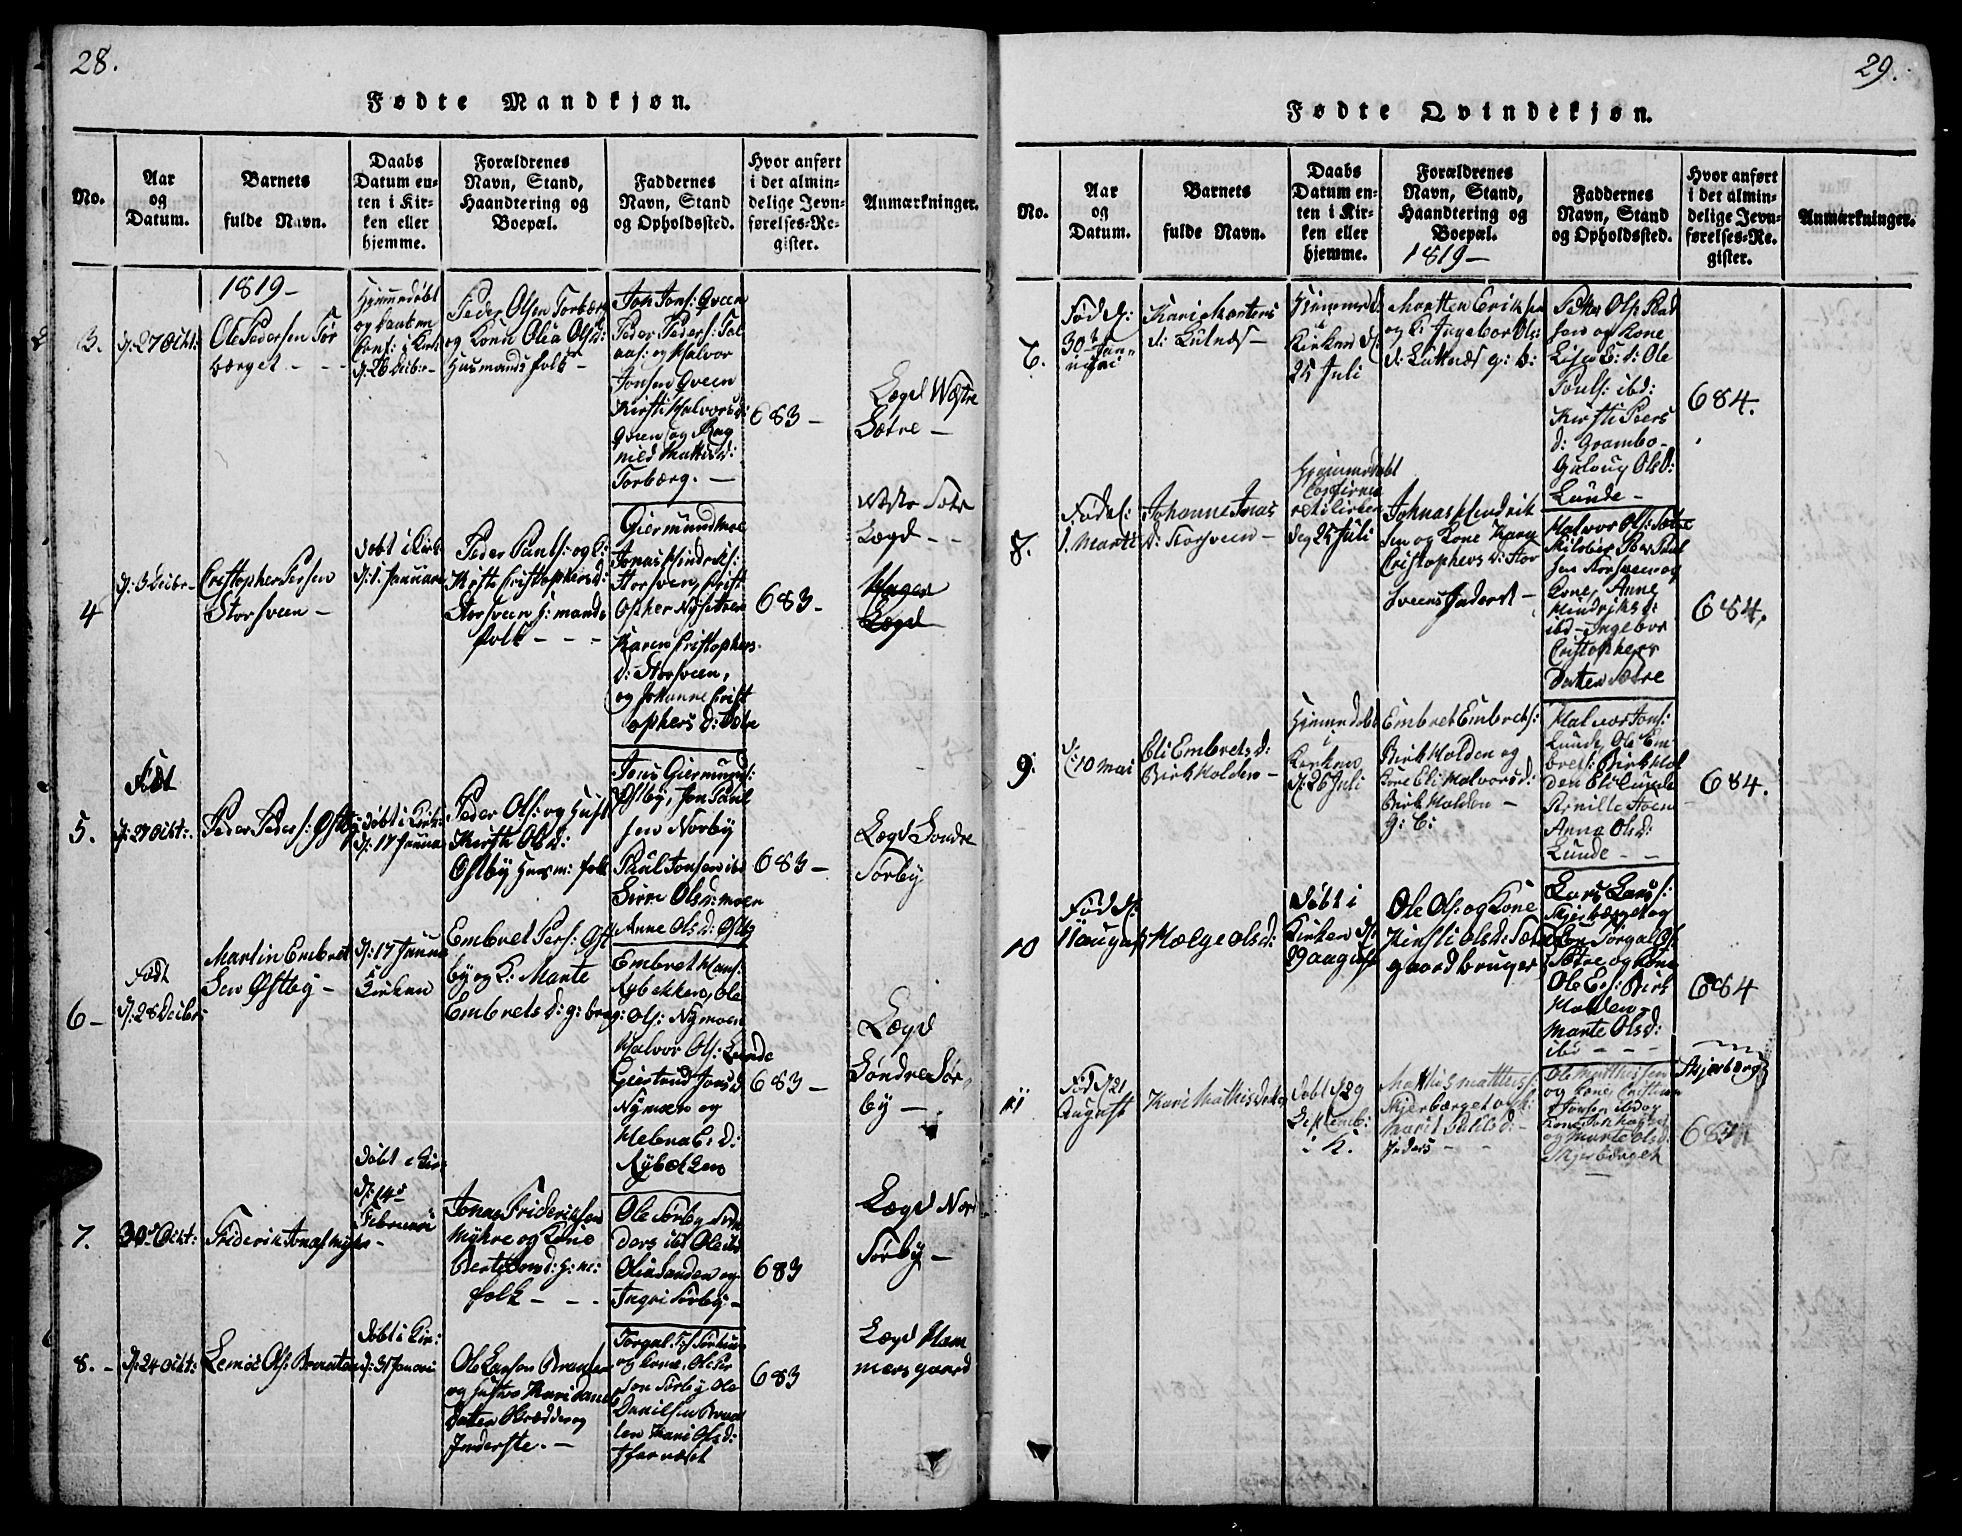 28.
Fødte Mandkjøn.
No.
Aar
og
Datum.
Barnets
fulde Navn.
Daabs
Datum en-
ten i Kir-
ken eller
hjemme.
Forældrenes
Navn, Stand,
Haandtering og
Boepæl.
Faddernes
Navn, Stand
og Opholdssted.
Hvor anført
i det almin-
delige Jevn-
førelses-Re-
gister.
Anmærkninger.
1819-
3.
d: 27 Octt:
Ole Pedersen Tor
bærget - - -
Hjemmedøbt
d: 26 Decbr-
Peder Olsen Torbærg
og Kone Olia Olsd:
Husmands folk -
Jon Jons: Qveen
Peder Peders:
og Halvor
Jonsen Qveen
Kirsti Halvorsd:
Qveen og Rag
nild
Torbærg. -
683 -
Lægd Wæstre
Sætre -
4
d: 3 Decbr-
Cristopher Persen
Storsveen -
døbt i Kirk:
d: 1 Januari
Peder Pauls: og K:
Kirsti Cristophersd:
Storsveen H: mands
folk - - -
Giermund Moe
Jonas Hindrics:
Storsveen, Crist
opher Nysætren
Karen Cristophers
d: Storsveen,
og Johanne Crist
ophers d: Sætre
683 -
Lægd - -
Lægd
5.
Født
d: 27 Octt:
Peder Peders: Østby
døbt i Kirk:
d: 17 Janua
Peder Ols: og Hust
Kirsti Olsd:
Østby Husm: folk
Jens Giermunds:
Østby, Jon Paul
sen Norby
Paul Jonsen ibd
Sirre Olsd: moen
Anne Olsd: Østby
683 -
Lægd Søndre
Sørby
6 -
Født
d: 28 Decbr:
Martin Embret
Sen Østby -
d: 17 Janua
Kirken
Embret Pers: Øst
by og K: Marte
Embrets d: g: brug:
Embret Hans:
Nybekken, Ole
Ols: Nymoen
Halvor Ols: Lunde
Giertrud Jonsd
Nymoen og
Helena E: d:
Nybekken
683 -
Lægd
Søndre Sør
by -
7.
30d Octt:
Friderik Jonas: Myhre -
døbt i Kir:
d: 14d
Februari
Jonas Frideriksen
Myhre og Kone
folk - - -
Ole Sørby
ders ibd Ole ibd
Ole Sanden og
Ingri Sørby -
683
Lægd Nord
Sørby -
8. -
d: 24 Octt:
Lemic Ols: Braaten
døbt i Kir:
d: 31 Januari
Ole Larsen Braaten
og Hustro Kari Daniels
datter
Inderste. -
og Kone. Ole Per
sen Sørby Ole
Danielsen Braa
ten Kari Olsd:
683
Lægd Ham
mersgaard
29.
Fødte Qvindekjøn.
No.
Aar
og
Datum.
Barnets
fulde Navn.
Daabs
Datum en-
ten i Kir-
ken eller
hjemme.
Forældrenes
Navn, Stand,
Haandtering og
Boepæl.
1819-
Faddernes
Navn, Stand
og Opholdssted.
Hvor anført
i det almin-
delige Jevn-
førelses-Re-
gister.
Anmærkninger.
7.
Fød d:
30te Jan
uari
Kari Martens
d: Lutnæs -
Hjemmed:
i
Kirken d:
25 Juli
Morten Eriksen
og K: Ingebor Ols
d: Lutnæs g: b:
Petter Ols:
sen og Kone
Lisa E: d: Ole
Pouls: ibd:
Kirsti Peers
d: Grambo -
Gulaug Olsd:
Lunde -
684.
8.
Fød d:
1. Marti
Johanne Jonas
d: Storsveen -
Hjemmedøbt
Confirme
ret i Kirken
deg 25 Juli
Johnas Hindrik
sen og Kone Karen
Cristophers d: Stor
Sveens Inderst -
Halvor Ols: Sætre
sen Storsveen og
Kone, Anne
Hindriksd:
ibd - Ingebor
Cristophers
Datter Sætre
684.
9.
d: 10 Mai
Eli Embretsd:
Birkholden -
Hjemmedøbt
i
Kirken
d: 26 Juli
Embret Embrets:
Birkholden og
Kone Eli Halvorsd:
Birkholden -
g: b:
Halvor Jons:
Lunde, Ole Em
brets: Birkhol
den Eli Lunde
Pernille Moen
Anna Olsd:
Lunde - -
684.
10
Fød d:
11 August
Helge Olsd:
Døbt i
Kirken d:
29 August
Ole Ols: og Kone
Kirsti Olsd: Sætre
gaardbruger
Lars Lars:
Skjerbærget og
Sætre og Kone
Ole Es: Birk
Holden -
Marte Olsd:
ibd - - -
684
11
Fød d: 21
August
Kari Mathisdatter
Døbt d: 29
Septemb:
i K.
Mathis Mattiss:
Skjerbærget og K:
Marit Pahlsd: -
Inders - -
Ole Mathissen
og Kone Cristian
Jonsen ibd og
og Marte Olsd:
Skjerbærget
Skjerberg
684